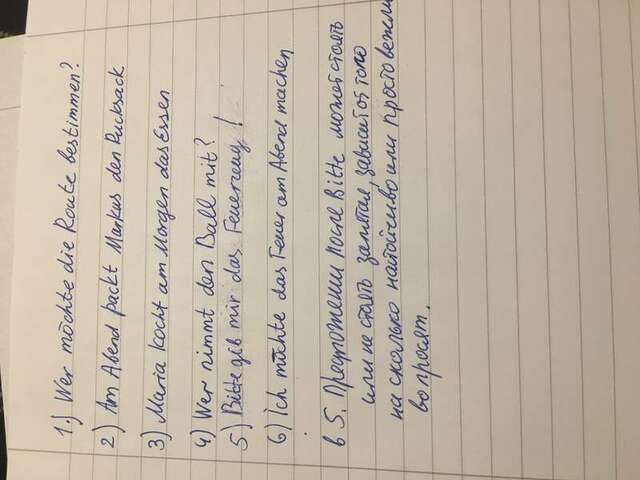 1.) Wer möchte die Route bestimmen?
2) Am Abend packt Markus den Rucksack
3) Maria kocht am Morgen das Essen
4) Wer nimmt den Ball mit?
5) Bitte gib mir das Feuerzeug!
6) Ich möchte das Feuer am Abend machen
в 5. Предложении после Bitte может стоять
или не стоять запятая, зависит от того
на сколько настойчиво или просто вежли
во просят.